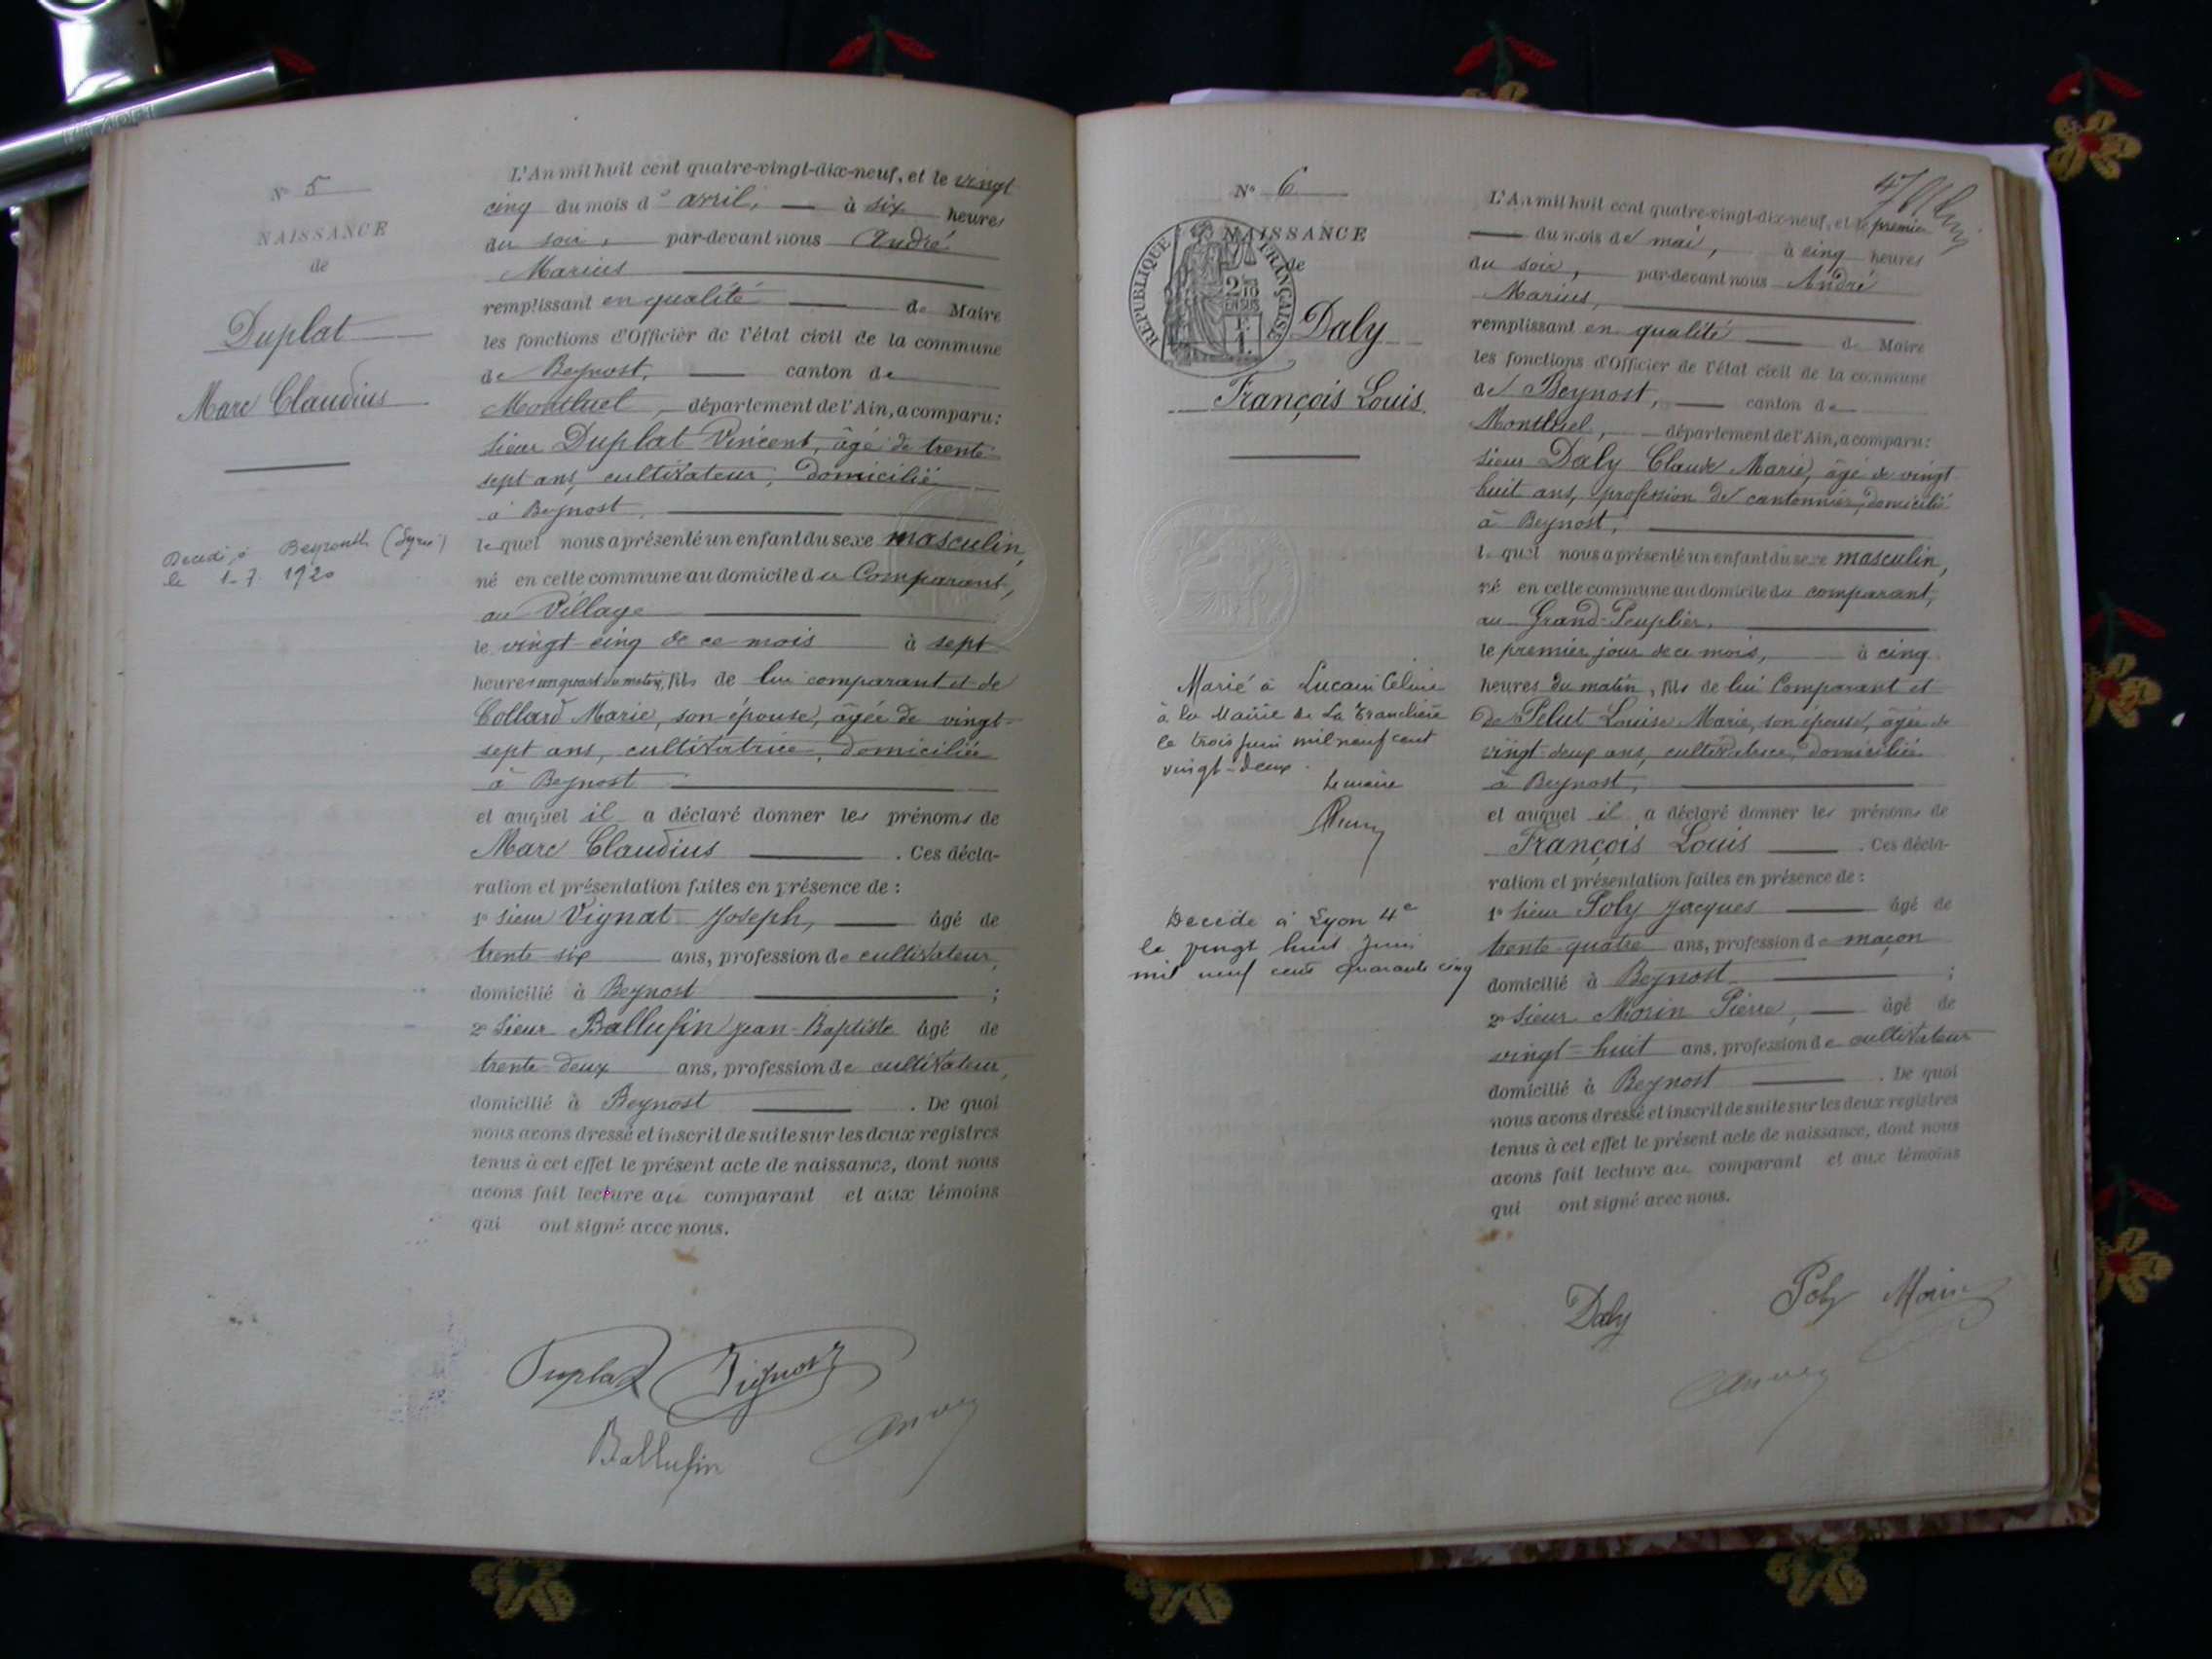 N° 5
NAISSANCE
de
Duplat
Marc Claudius
Decédé à Beyrouth (Syrie)
le 1-7 1920
L'An mil huit cent quatre-vingt-dix-neuf, et le vingt
cinq du mois d' avril, à six heures
du soir, par-devant nous André
Marius
remplissant en qualité de Maire
les fonctions d'Officier de l'état civil de la commune
de Beynost, canton de
Montluel, département de l'Ain, a comparu:
sieur Duplat Vincent, âgé de trente
sept ans, cultivateur, domicilié
à Beynost,
lequel nous a présenté un enfant du sexe masculin,
né en cette commune au domicile du Comparant,
au Village
le vingt cinq de ce mois à sept
heures un quart du matin, fils de lui comparant et de
Collard Marie, son épouse, âgée de vingt-
sept ans, cultivatrice, domiciliée
à Beynost
et auquel il a déclaré donner les prénoms de
Marc Claudius. Ces décla-
ration et présentation faites en présence de :
1° sieur Vignat Joseph, âgé de
trente six ans, profession de cultivateur,
domicilié à Beynost ;
2° Sieur Ballufin Jean-Baptiste âgé de
trente deux ans, profession de cultivateur,
domicilié à Beynost. De quoi
nous avons dressé et inscrit de suite sur les deux registres
tenus à cet effet le présent acte de naissance, dont nous
avons fait lecture au comparant et aux témoins
qui ont signé avec nous.
Duplat Vignat
Ballufin
N° 6
NAISSANCE
de
REPUBLIQUE FRANÇAISE
2/10 EN SUS
F. 1.
Daly
François Louis
Marié à Lucain Céline
à la Mairie de La Tranclière
le trois juin mil neuf cent
vingt-deux.
Le maire
Decédé à Lyon 4e
le vingt huit Juin
mil neuf cent quarante cinq
47
L'An mil huit cent quatre-vingt-dix-neuf, et le premier
du mois de mai, à cinq heures
du soir, par-devant nous André
Marius,
remplissant en qualité de Maire
les fonctions d'Officier de l'état civil de la commune
de Beynost, canton de
Montluel, département de l'Ain, a comparu:
sieur Daly Claude Marie, âgé de vingt
huit ans, profession de cantonnier, domicilié
à Beynost,
lequel nous a présenté un enfant du sexe masculin,
né en cette commune au domicile du comparant,
au Grand-Peuplier,
le premier jour de ce mois, à cinq
heures du matin, fils de lui Comparant et
de Pelut Louise Marie, son épouse, âgée de
vingt-deux ans, cultivatrice, domiciliée
à Beynost,
et auquel il a déclaré donner les prénoms de
François Louis. Ces décla-
ration et présentation faites en présence de :
1° sieur Poly Jacques âgé de
trente-quatre ans, profession de maçon
domicilié à Beynost ;
2° sieur Morin Pierre, âgé de
vingt-huit ans, profession de cultivateur
domicilié à Beynost. De quoi
nous avons dressé et inscrit de suite sur les deux registres
tenus à cet effet le présent acte de naissance, dont nous
avons fait lecture au comparant et aux témoins
qui ont signé avec nous.
Daly Poly Morin